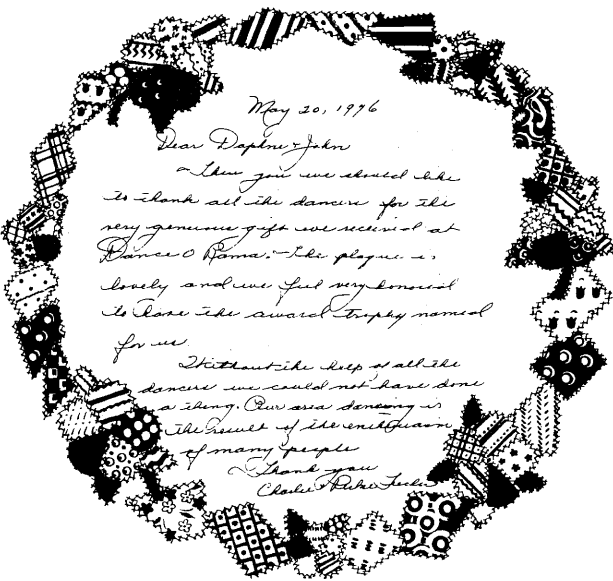 May 20, 1976
Dear Daphne & John
Thru you we should like
to thank all the dancers for the
very generous gift we received at
Dance O Rama. The plaque is
lovely and we feel very honored
to have the award trophy named
for us.
Without the help of all the
dancers we could not have done
a thing. Our area dancing is
the result of the enthusasm
of many people
Thank you
Charlie &